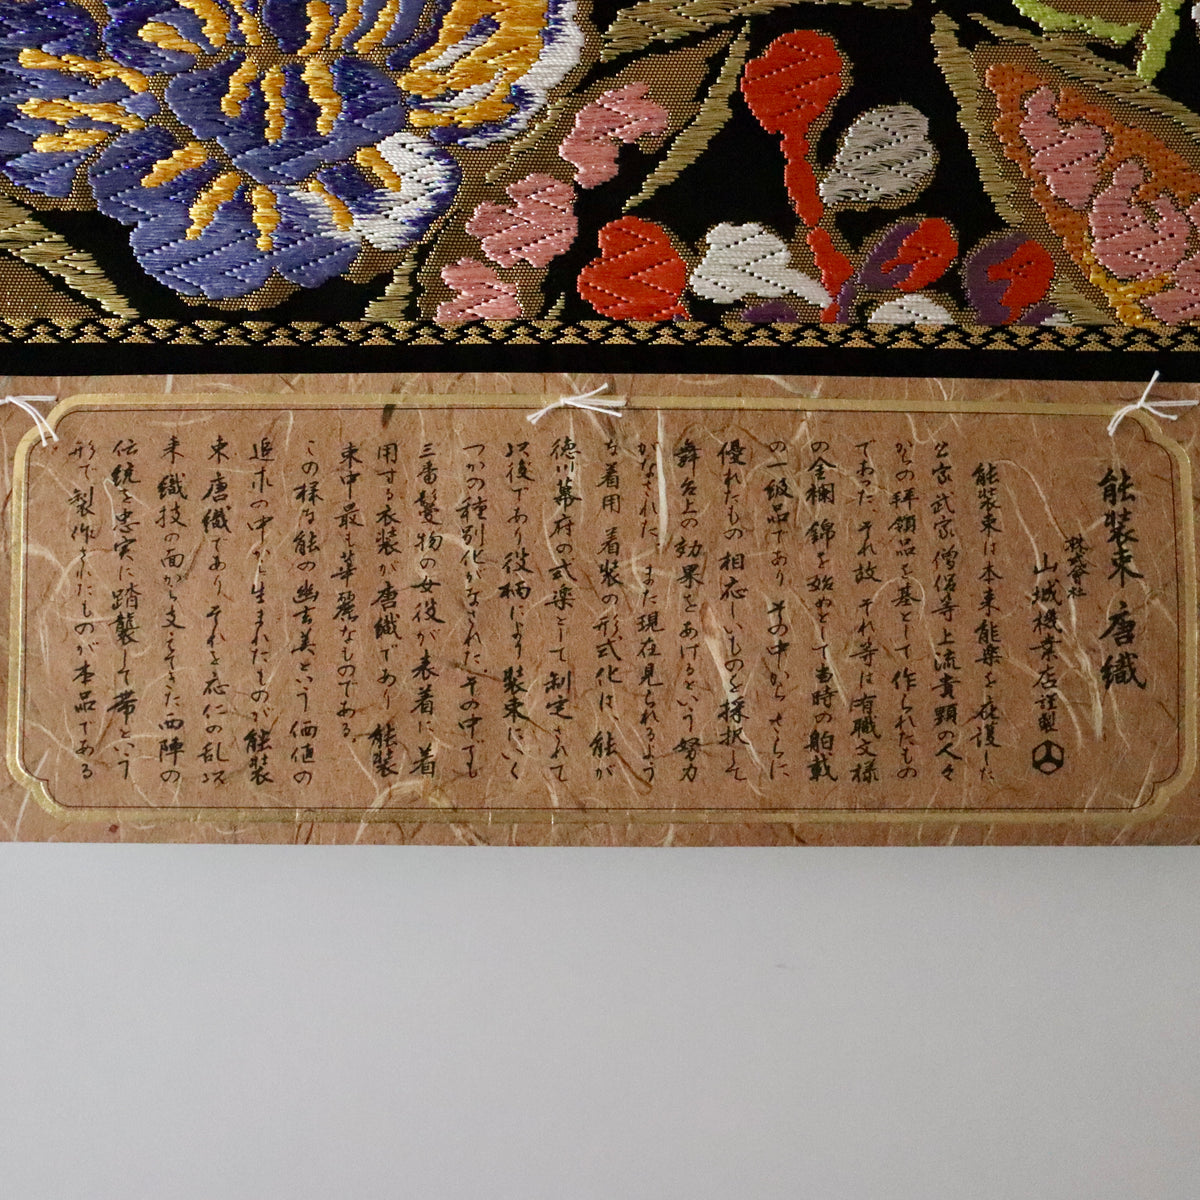 能装束 唐織
株式会社
山城機業店謹製
能装束は本来能楽を庇護した
公家武家僧侶等上流貴顕の人々
からの拝領品を基として作られたもの
であった それ故 それ等は有職文様
の金襴 錦を始めとして当時の舶載
の一級品であり その中から さらに
優れたもの 相応しいものを採択して
舞台上の効果をあげるという努力
がなされた また現在見られるよう
な着用 着装の形式化は、能が
徳川幕府の式楽として 制定されて
以後であり 役柄により 装束にいく
つかの種別化がなされた その中でも
三番鬘物の女役が表着に 着
用する衣装が唐織であり 能装
束中最も華麗なものである
この様な能の幽玄美という 価値の
追求の中から生まれたものが 能装
束 唐織であり それを応仁の乱以
来 織技の面から支えてきた 西陣の
伝統を忠実に踏襲して帯という
形で製作されたものが本品である